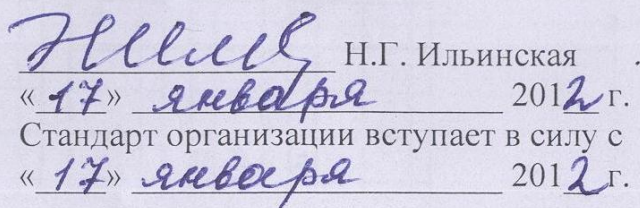 Н.Г. Ильинская
«17» января 2012 г.
Стандарт организации вступает в силу с
«17» января 2012 г.